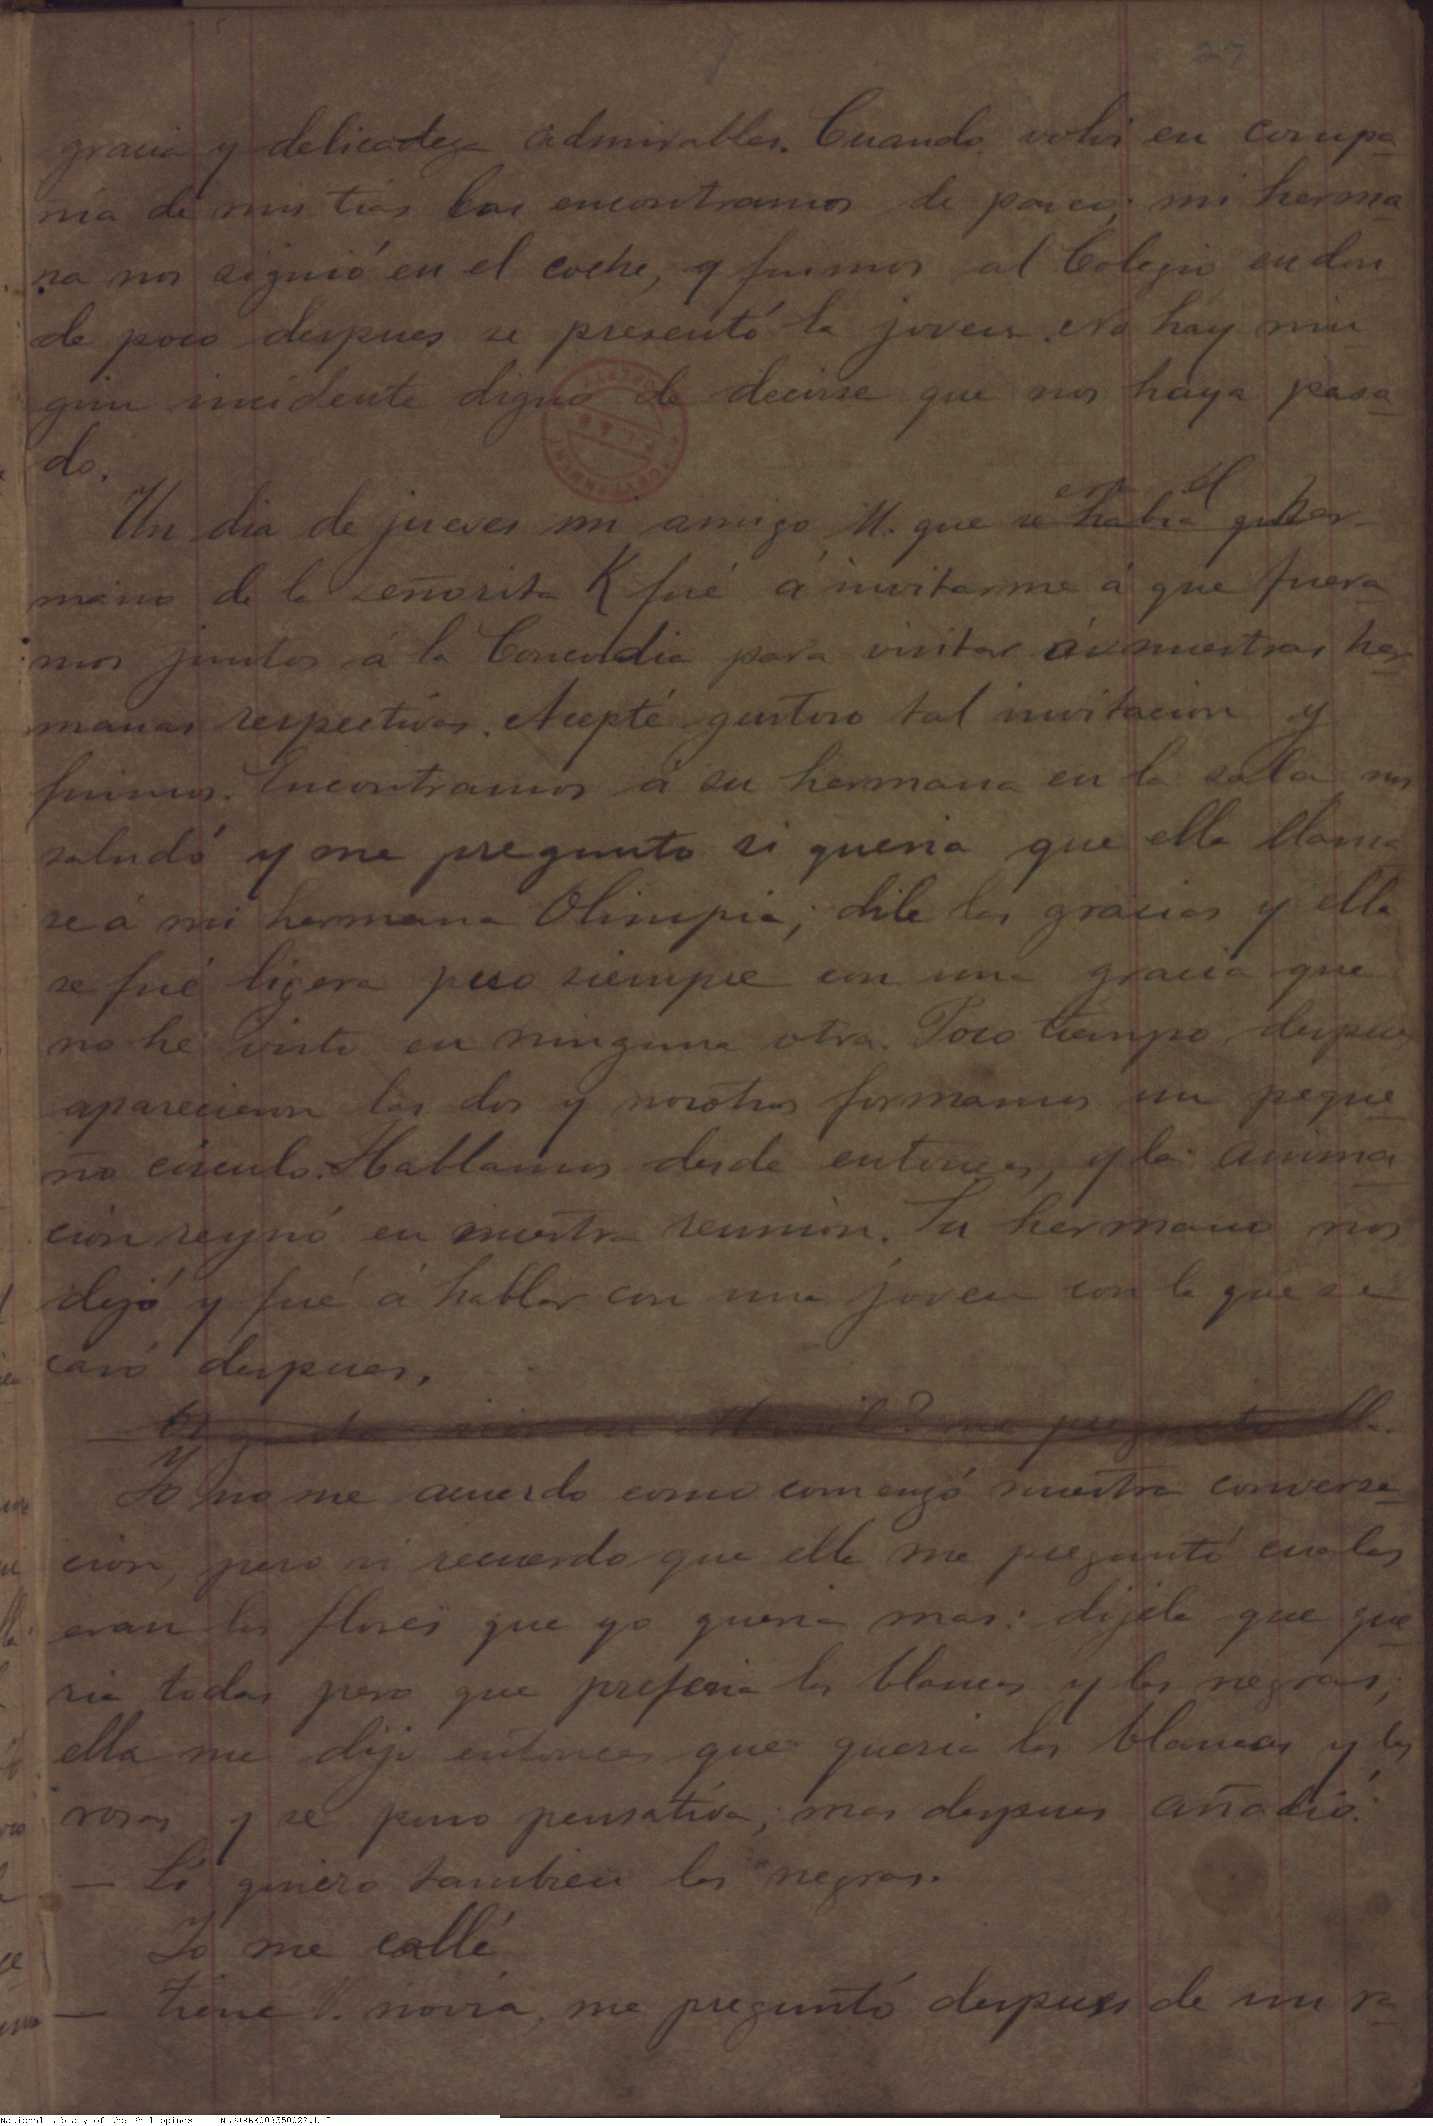 27
gracia y delicadeza admirables. Cuando volví en compa-
ñia de mis tias las encontramos de paseo; mi herma-
na nos siguió en el coche, y fuimos al Colegio en don
de poco despues se presentó la joven. No hay nin
gun incidente digno de decirse que nos haya pasa-
do.
era el
Un dia de jueves mi amigo M. que se habia her-
mano de la señorita K fué á invitarme á que fuera-
mos juntos á la Concordia para visitar á nuestras her-
manas respectivas. Acepté gustoso tal invitacion y
fuimos. Encontramos á su hermana en la sala nos
saludó y me pregunto si queria que ella llama-
se á mi hermana Olimpia; dile las gracias y ella
se fué ligera pero siempre con una gracia que
no he visto en ninguna otra. Poco tiempo despues
aparecieron las dos y nosotros formamos un peque-
ño circulo. Hablamos desde entonces, y la anima-
cion reynó en nuestra reunion. Su hermano nos
dejó y fué á hablar con una joven con la que se
casó despues.
me pregunto ella.
Yo no me acuerdo como comenzó nuestra conversa-
cion, pero si recuerdo que ella me preguntó cuales
eran las flores que yo queria mas: dijela que que-
ria todas pero que preferia las blancas y las negras;
ella me dijo entonces que queria las blancas y las
rosas y se puso pensativa; mas despues añadió:
— Sí quiero tambien las negras.
Yo me callé
— Tiene V. novia, me preguntó despues de un ra-
National Library of the Philippines